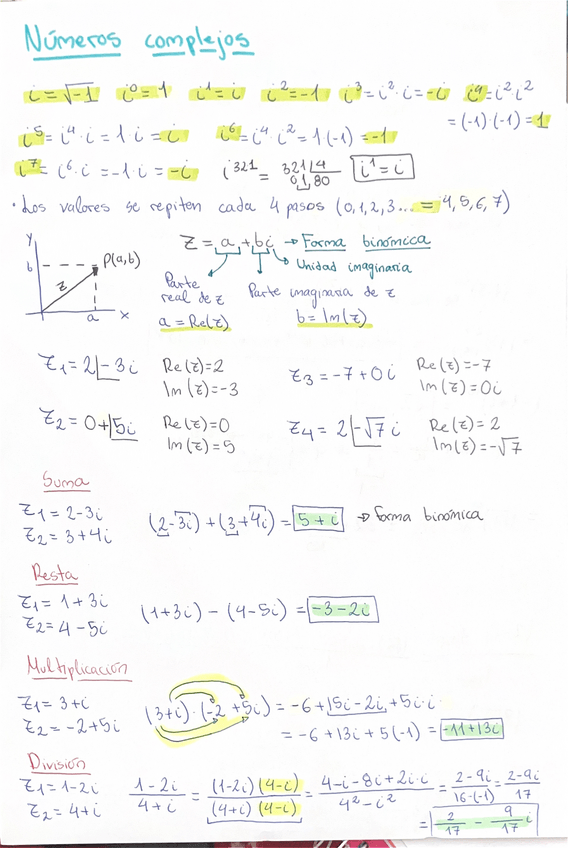 Números complejos
i=√-1 i⁰=1 i¹=i i²=-1 i³=i²·i=-i i⁴=i²i²
=(-1)·(-1)=1
i⁵=i⁴·i=1·i=i i⁶=i⁴·i²=1(-1)=-1
i⁷=i⁶·i=-1·i=-i i³²¹= 321⌊4 i¹=i
01,80
·Los valores se repiten cada 4 pasos (0,1,2,3...=4,5,6,7)
y
b P(a,b)
z
a x
z=a+bi → Forma binómica
Unidad imaginaria
Parte real de z Parte imaginaria de z
a=Re(z) b=Im(z)
z₁=2-3i Re(z)=2
Im(z)=-3
z₃=-7+0i Re(z)=-7
Im(z)=0i
z₂=0+5i Re(z)=0
Im(z)=5
z₄=2-√7i Re(z)=2
Im(z)=-√7
Suma
z₁=2-3i
z₂=3+4i
(2-3i)+(3+4i)=5+i → forma binómica
Resta
z₁=1+3i
z₂=4-5i
(1+3i)-(4-5i)=-3-2i
Multiplicación
z₁=3+i
z₂=-2+5i
(3+i)·(-2+5i)=-6+15i-2i+5i·i
=-6+13i+5(-1)=-11+13i
División
z₁=1-2i
z₂=4+i
(1-2i)/(4+i)=(1-2i)(4-i)/(4+i)(4-i)=(4-i-8i+2i·i)/(4²-i²)=(2-9i)/(16-(-1))=(2-9i)/17
=2/17-9/17i